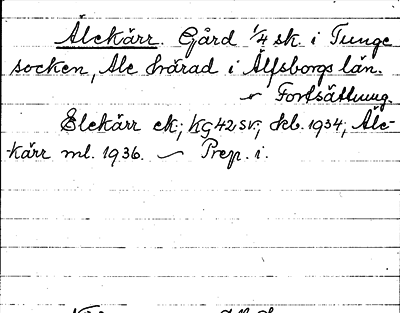 Älekärr. Gård 1/4 sk. i Tunge
socken, Ale härad i Älfsborgs län.
~ Fortsättning.
Elekärr ek; KG 42 SV; skb. 1934; Äle-
kärr ml. 1936. — Prep. i.